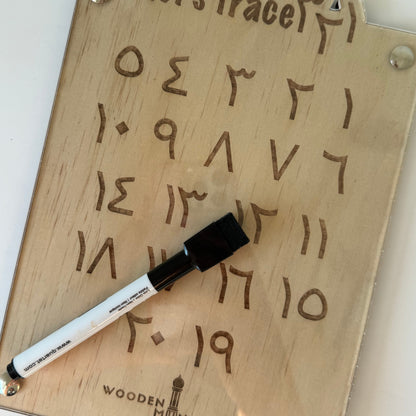 Trace
١ ٢ ٣ ٤ ٥
٦ ٧ ٨ ٩ ١٠
١١ ١٢ ١٣ ١٤
١٥ ١٦ ١٨
١٩ ٢٠
www.quartet.com
WOODEN